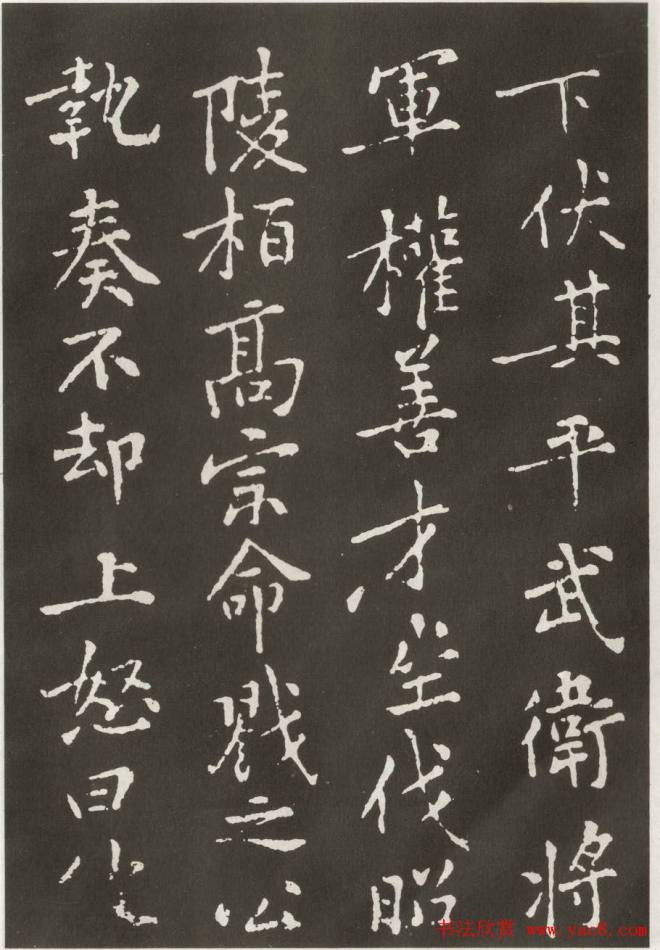 下伏其平武衛將
軍權善才坐伐昭
陵柏高宗命戮之公
執奏不却上怒曰少
书法欣赏 www.yac8.com